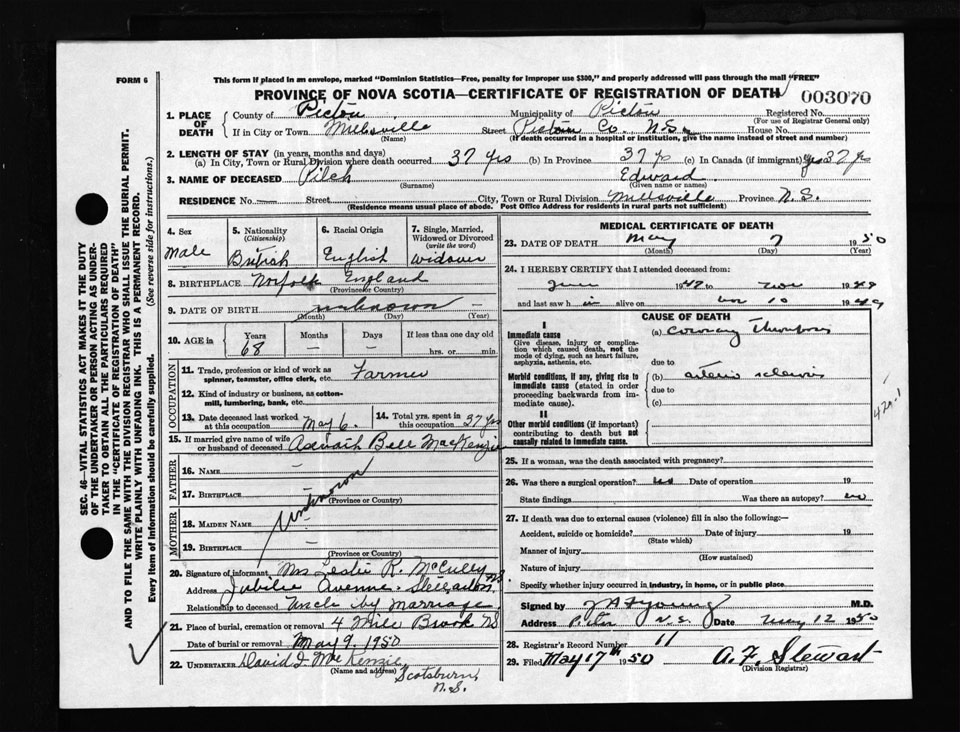 FORM 6
This form if placed in an envelope, marked "Dominion Statistics—Free, penalty for improper use $300," and properly addressed will pass through the mail "FREE"
PROVINCE OF NOVA SCOTIA—CERTIFICATE OF REGISTRATION OF DEATH
003070
1. PLACE OF DEATH County of Pictou Municipality of Pictou Registered No. (For use of Registrar General only)
If in City or Town Millsville (Name) Street Pictou Co. N.S. House No.
(If death occurred in a hospital or institution, give the name instead of street and number)
2. LENGTH OF STAY (in years, months and days)
(a) In City, Town or Rural Division where death occurred 37 yrs (b) In Province 37 yrs (c) In Canada (if immigrant) yes 37 yrs
3. NAME OF DECEASED Pilch (Surname) Edward. (Given name or names)
RESIDENCE No. — Street City, Town or Rural Division Millsville Province N.S.
(Residence means usual place of abode. Post Office Address for residents in rural parts not sufficient)
4. Sex Male
5. Nationality (Citizenship) British
6. Racial Origin English
7. Single, Married, Widowed or Divorced (write the word) Widower
8. BIRTHPLACE Norfolk England (Province or Country)
9. DATE OF BIRTH unknown — (Month) (Day) (Year)
10. AGE in Years 68 Months — Days — If less than one day old hrs. or min.
OCCUPATION
11. Trade, profession or kind of work as spinner, teamster, office clerk, etc. Farmer
12. Kind of industry or business, as cotton-mill, lumbering, bank, etc.
13. Date deceased last worked at this occupation May 6.
14. Total yrs. spent in this occupation 37 yrs
15. If married give name of wife or husband of deceased Bell MacKenzie
FATHER
16. Name —
17. Birthplace (Province or Country)
unknown
MOTHER
18. Maiden Name —
19. Birthplace — (Province or Country)
20. Signature of informant Mrs Leslie R. McCully
Address Jubilee Avenue. Stellarton N.S.
Relationship to deceased Uncle by marriage
21. Place of burial, cremation or removal 4 Mile Brook NS
Date of burial or removal May 9, 1950
22. UNDERTAKER David J. MacKenzie (Name and address)
Scotsburn,
N.S.
MEDICAL CERTIFICATE OF DEATH
23. DATE OF DEATH May 7 1950
(Month) (Day) (Year)
24. I HEREBY CERTIFY that I attended deceased from:
June 1947 to Nov 1949
and last saw h im alive on Nov 10 1949
CAUSE OF DEATH
I
Immediate cause
Give disease, injury or complication which caused death, not the mode of dying, such as heart failure, asphyxia, asthenia, etc.
(a) coronary Thrombosis
due to
Morbid conditions, if any, giving rise to immediate cause (stated in order proceeding backwards from immediate cause).
(b) arterio sclerosis
due to
(c)
II
Other morbid conditions (if important) contributing to death but not causally related to immediate cause.
420.1
25. If a woman, was the death associated with pregnancy?
26. Was there a surgical operation? no Date of operation 19
State findings Was there an autopsy? no
27. If death was due to external causes (violence) fill in also the following:—
Accident, suicide or homicide? Date of injury 19
(State which)
Manner of injury
(How sustained)
Nature of injury
Specify whether injury occurred in industry, in home, or in public place.
Signed by Young M.D.
Address Pictou N.S. Date May 12 1950
28. Registrar's Record Number 11
29. Filed May 17th 1950 A. F. Stewart
(Division Registrar)
SEC. 46—VITAL STATISTICS ACT MAKES IT THE DUTY
OF THE UNDERTAKER OR PERSON ACTING AS UNDER-
TAKER TO OBTAIN ALL THE PARTICULARS REQUIRED
IN THE "CERTIFICATE OF REGISTRATION OF DEATH"
AND TO FILE THE SAME WITH THE DIVISION REGISTRAR WHO SHALL ISSUE THE BURIAL PERMIT.
WRITE PLAINLY WITH UNFADING INK. THIS IS A PERMANENT RECORD.
Every item of information should be carefully supplied. (See reverse side for instructions.)